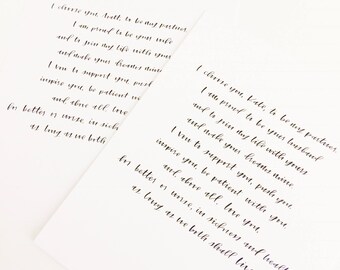 I choose you, to be my partner
I am proud to be your wife
and to join my life with yours
and make your dreams mine
I vow to support you, push
inspire you, be patient w
and above all love
for better or worse, in sick
as long as we both
I choose you, Kate, to be my partner
I am proud to be your husband
and to join my life with yours
and make your dreams mine
I vow to support you, push you,
inspire you, be patient with you,
and above all love you,
for better or worse, in sickness and health
as long as we both shall liv